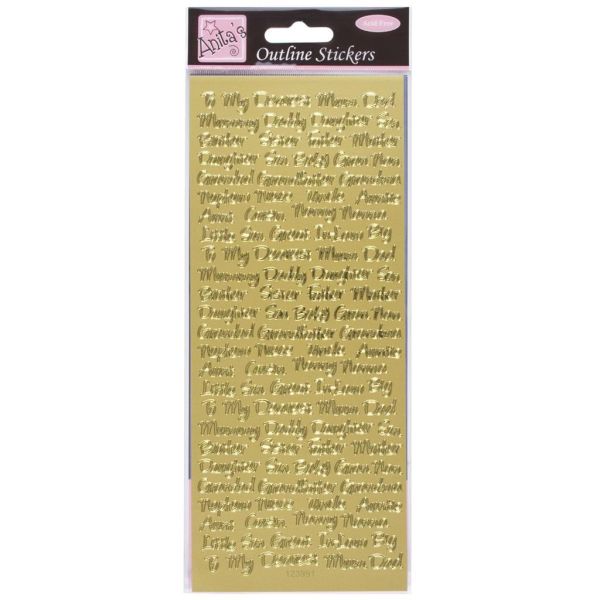 Anita's
Outline Stickers
Acid Free
To My Dearest Mum Dad
Mummy Daddy Daughter Son
Brother Sister Father Mother
Daughter Son Baby Gran Nan
Grandad Grandmother Grandson
Nephew Niece Uncle Auntie
Aunt Cousin Nanny Nanna
Little Son Great In Law Big
To My Dearest Mum Dad
Mummy Daddy Daughter Son
Brother Sister Father Mother
Daughter Son Baby Gran Nan
Grandad Grandmother Grandson
Nephew Niece Uncle Auntie
Aunt Cousin Nanny Nanna
Little Son Great In Law Big
To My Dearest Mum Dad
Mummy Daddy Daughter Son
Brother Sister Father Mother
Daughter Son Baby Gran Nan
Grandad Grandmother Grandson
Nephew Niece Uncle Auntie
Aunt Cousin Nanny Nanna
Little Son Great In Law Big
To My Dearest Mum Dad
123391